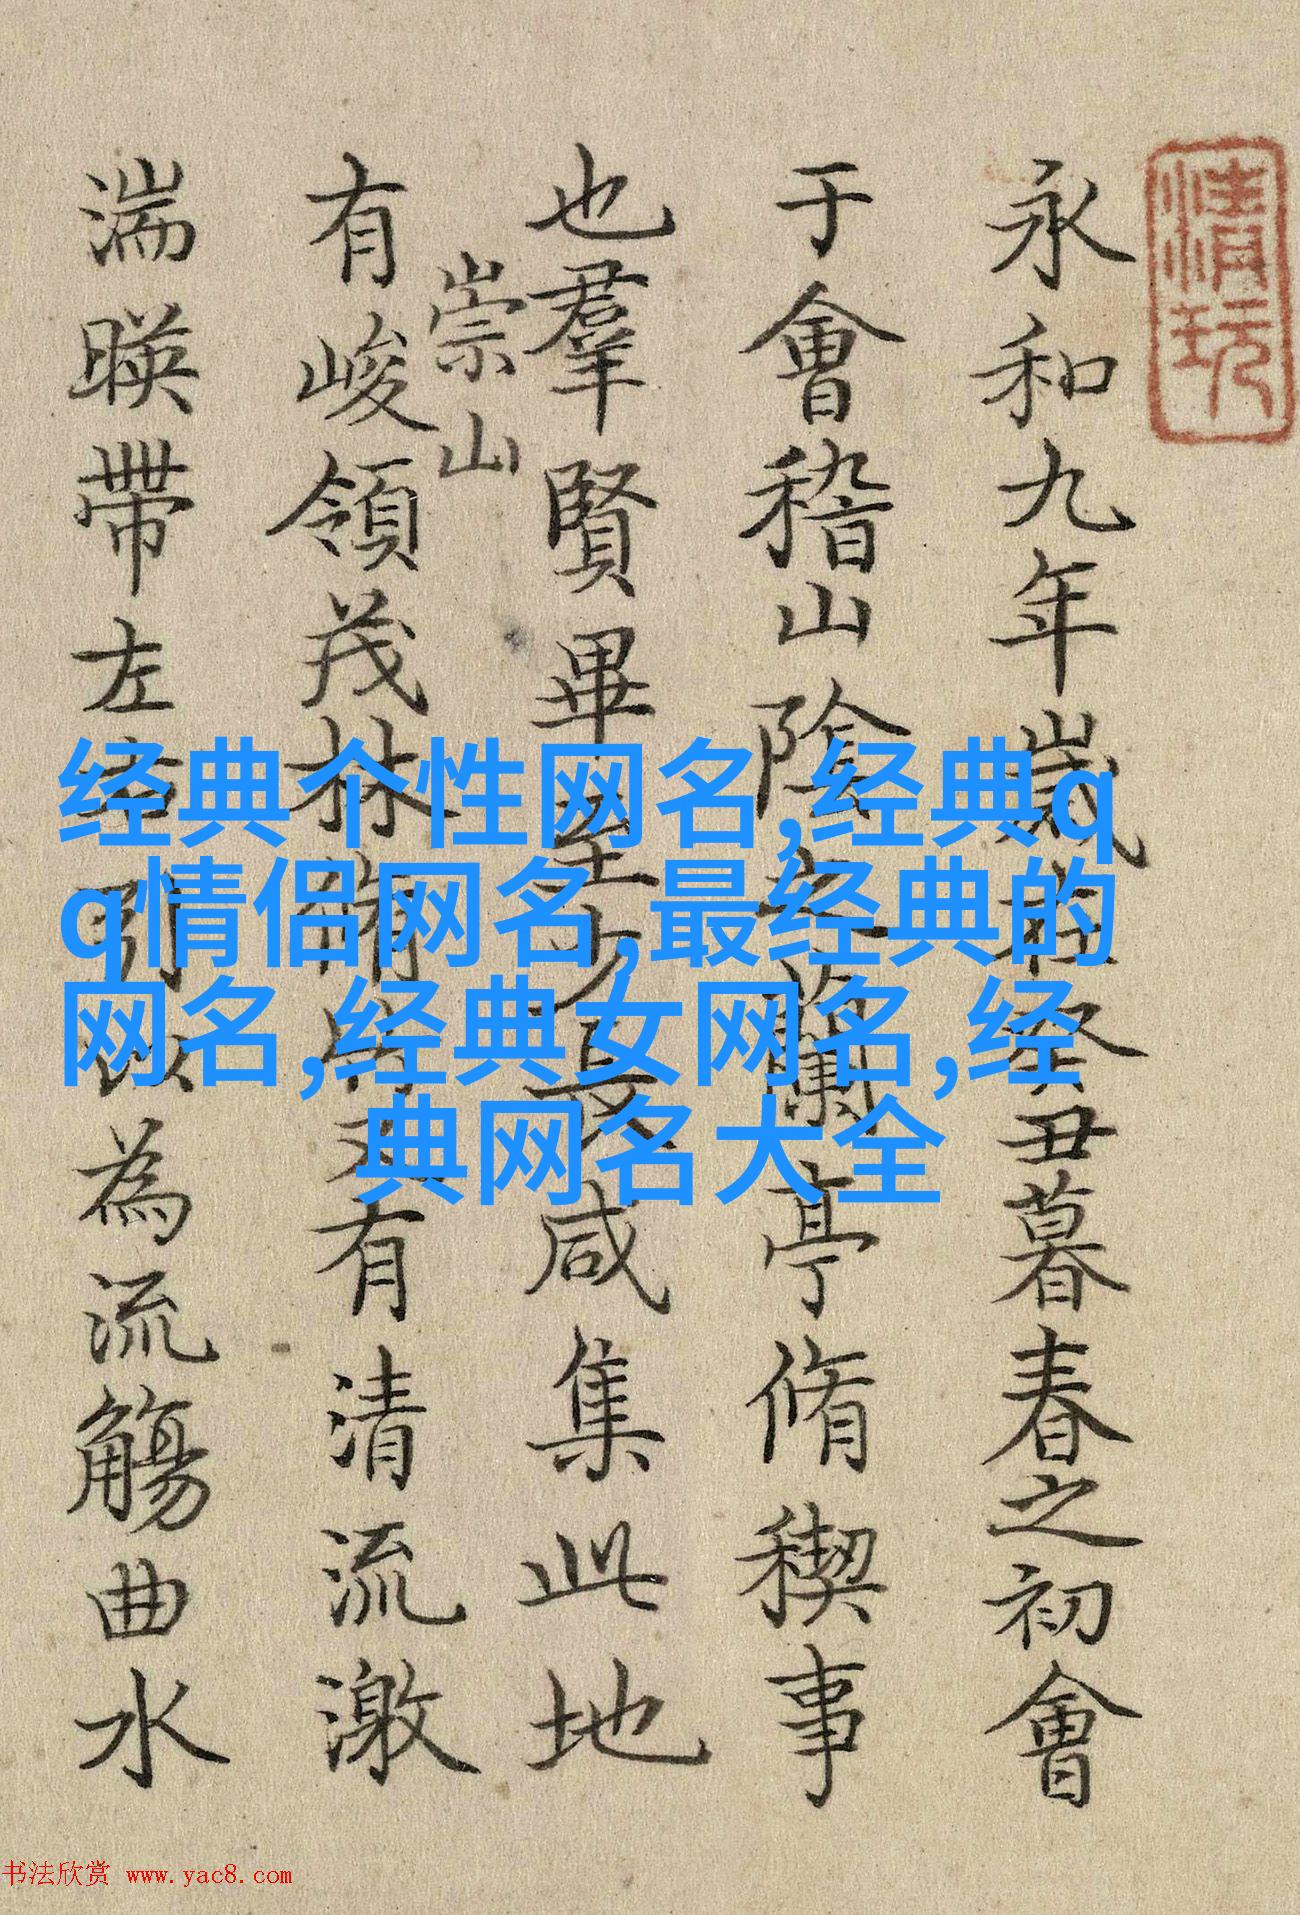 清玩
永和九年歲在癸丑暮春之初會
于會稽山陰之蘭亭脩稧事
也羣賢畢至少長咸集此地
崇山
有峻領茂林脩竹又有清流激
湍暎帶左右引以為流觴曲水
经典个性网名,经典q
q情侣网名,最经典的
网名,经典女网名,经
典网名大全
书法欣赏 www.yac8.com